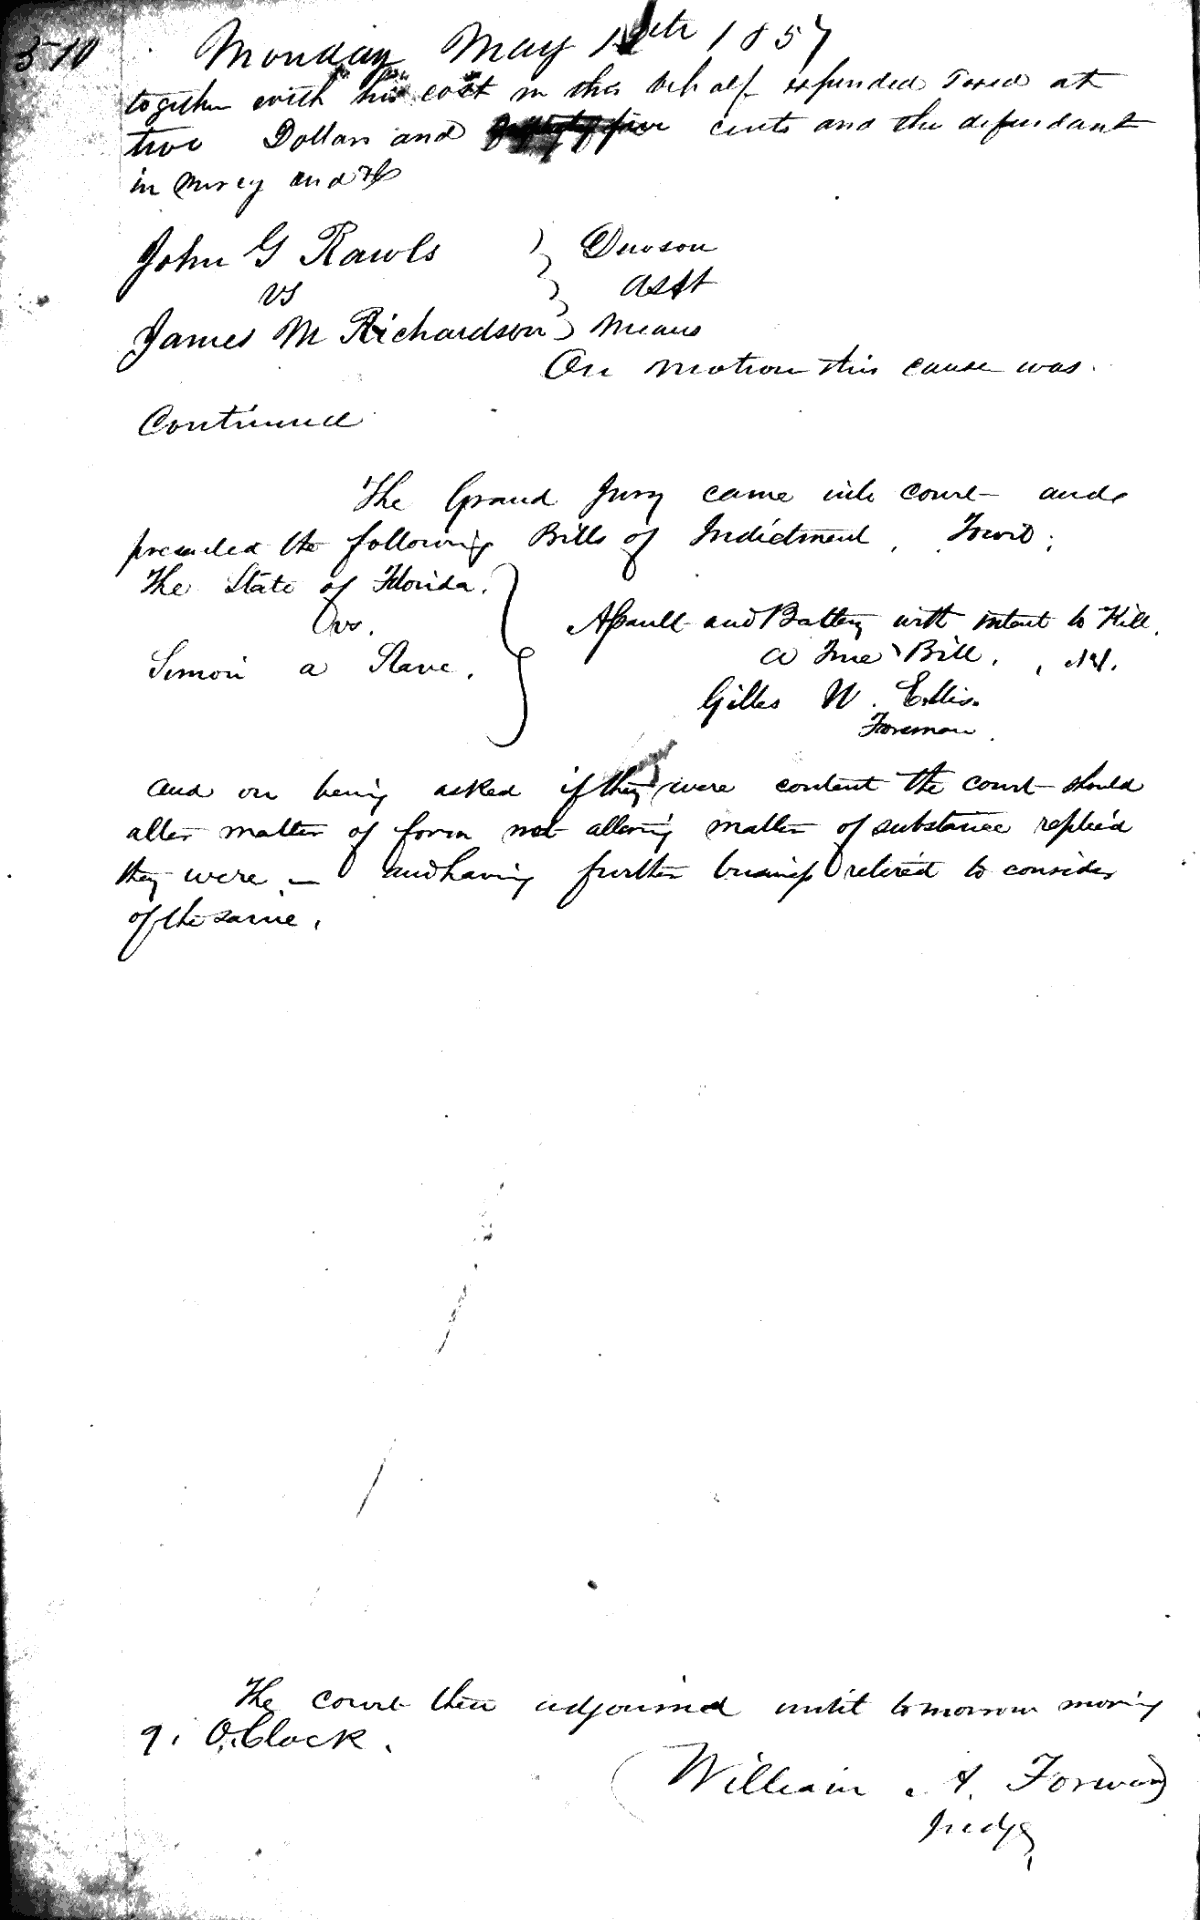 510
Monday May th 1857
together with his cost in this behalf expended Taxed at
two Dollars and cents and the defendant
in mercy and &c
John G Rawls Dawson
vs Asst
James M Richardson Means
On motion this cause was
Continued
The Grand Jury came into court and
presented the following Bills of Indictment, Towit;
The State of Florida.
vs. Assault and Battery with intent to Kill.
Simon a Slave. A True Bill.
Gilles W. Ellis.
Foreman.
and on being asked if they were content the court should
alter matter of form not altering matter of substance replied
they were — and having further business retired to consider
of the same.
The court then adjourned until tomorrow morning
9. O.Clock.
William A. Forward
Judge